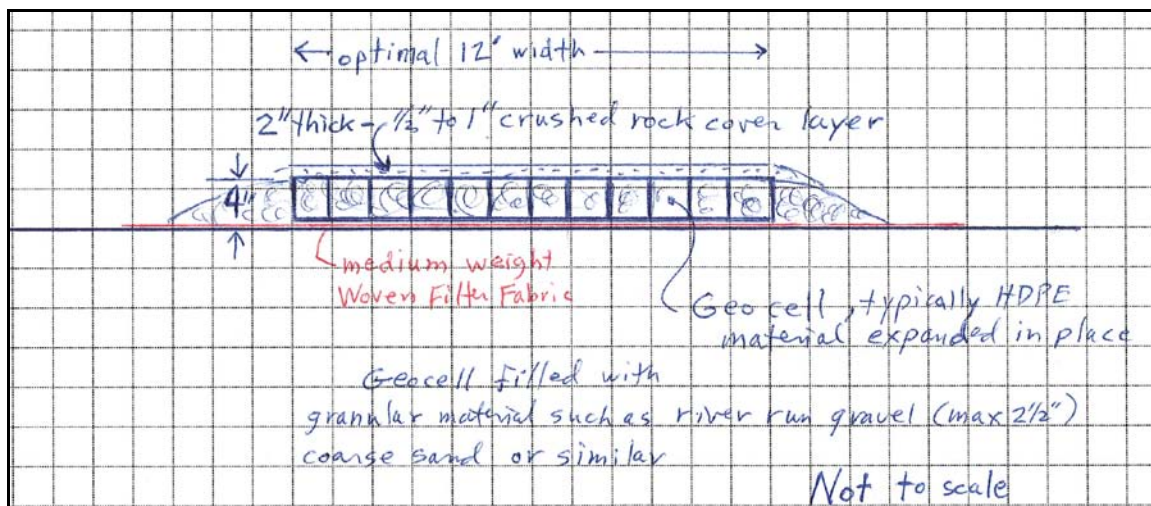 optimal 12' width
2" thick - 1/2" to 1" crushed rock cover layer
4"
medium weight
Woven Filter Fabric
Geocell, typically HDPE
material expanded in place
Geocell filled with
granular material such as river run gravel (max 2 1/2")
coarse sand or similar
Not to scale